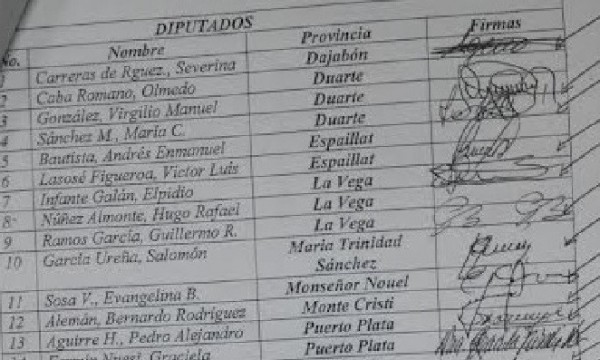 DIPUTADOS
No. Nombre Provincia Firmas
1 Carreras de Rguez., Severina Dajabón
2 Caba Romano, Olmedo Duarte
3 González, Virgilio Manuel Duarte
4 Sánchez M., María C. Duarte
5 Bautista, Andrés Enmanuel Espaillat
6 Lasosé Figueroa, Víctor Luis Espaillat
7 Infante Galán, Elpidio La Vega
8 Núñez Almonte, Hugo Rafael La Vega
9 Ramos García, Guillermo R. La Vega
10 García Ureña, Salomón Maria Trinidad
Sánchez
11 Sosa V., Evangelina B. Monseñor Nouel
12 Alemán, Bernardo Rodríguez Monte Cristi
13 Aguirre H., Pedro Alejandro Puerto Plata
Graciela Puerto Plata